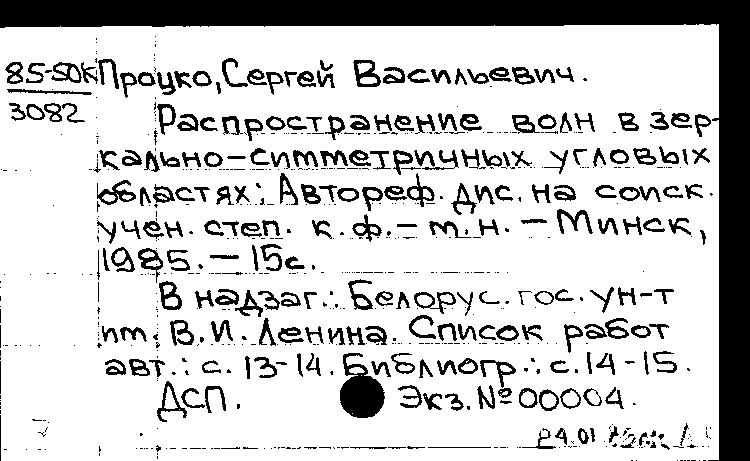 85-50К Процко, Сергей Васильевич.
3082
Распространение волн в зер-
кально-симметричных угловых
областях: Автореф. дис. на соиск.
учен. степ. к.ф.-м.н. - Минск,
1985. - 15с.
В надзаг.: Белорус. гос. ун-т
им. В.И. Ленина. Список работ
авт.: с. 13-14. Библиогр.: с. 14-15.
ДСП. Экз. № 00004.
24.01